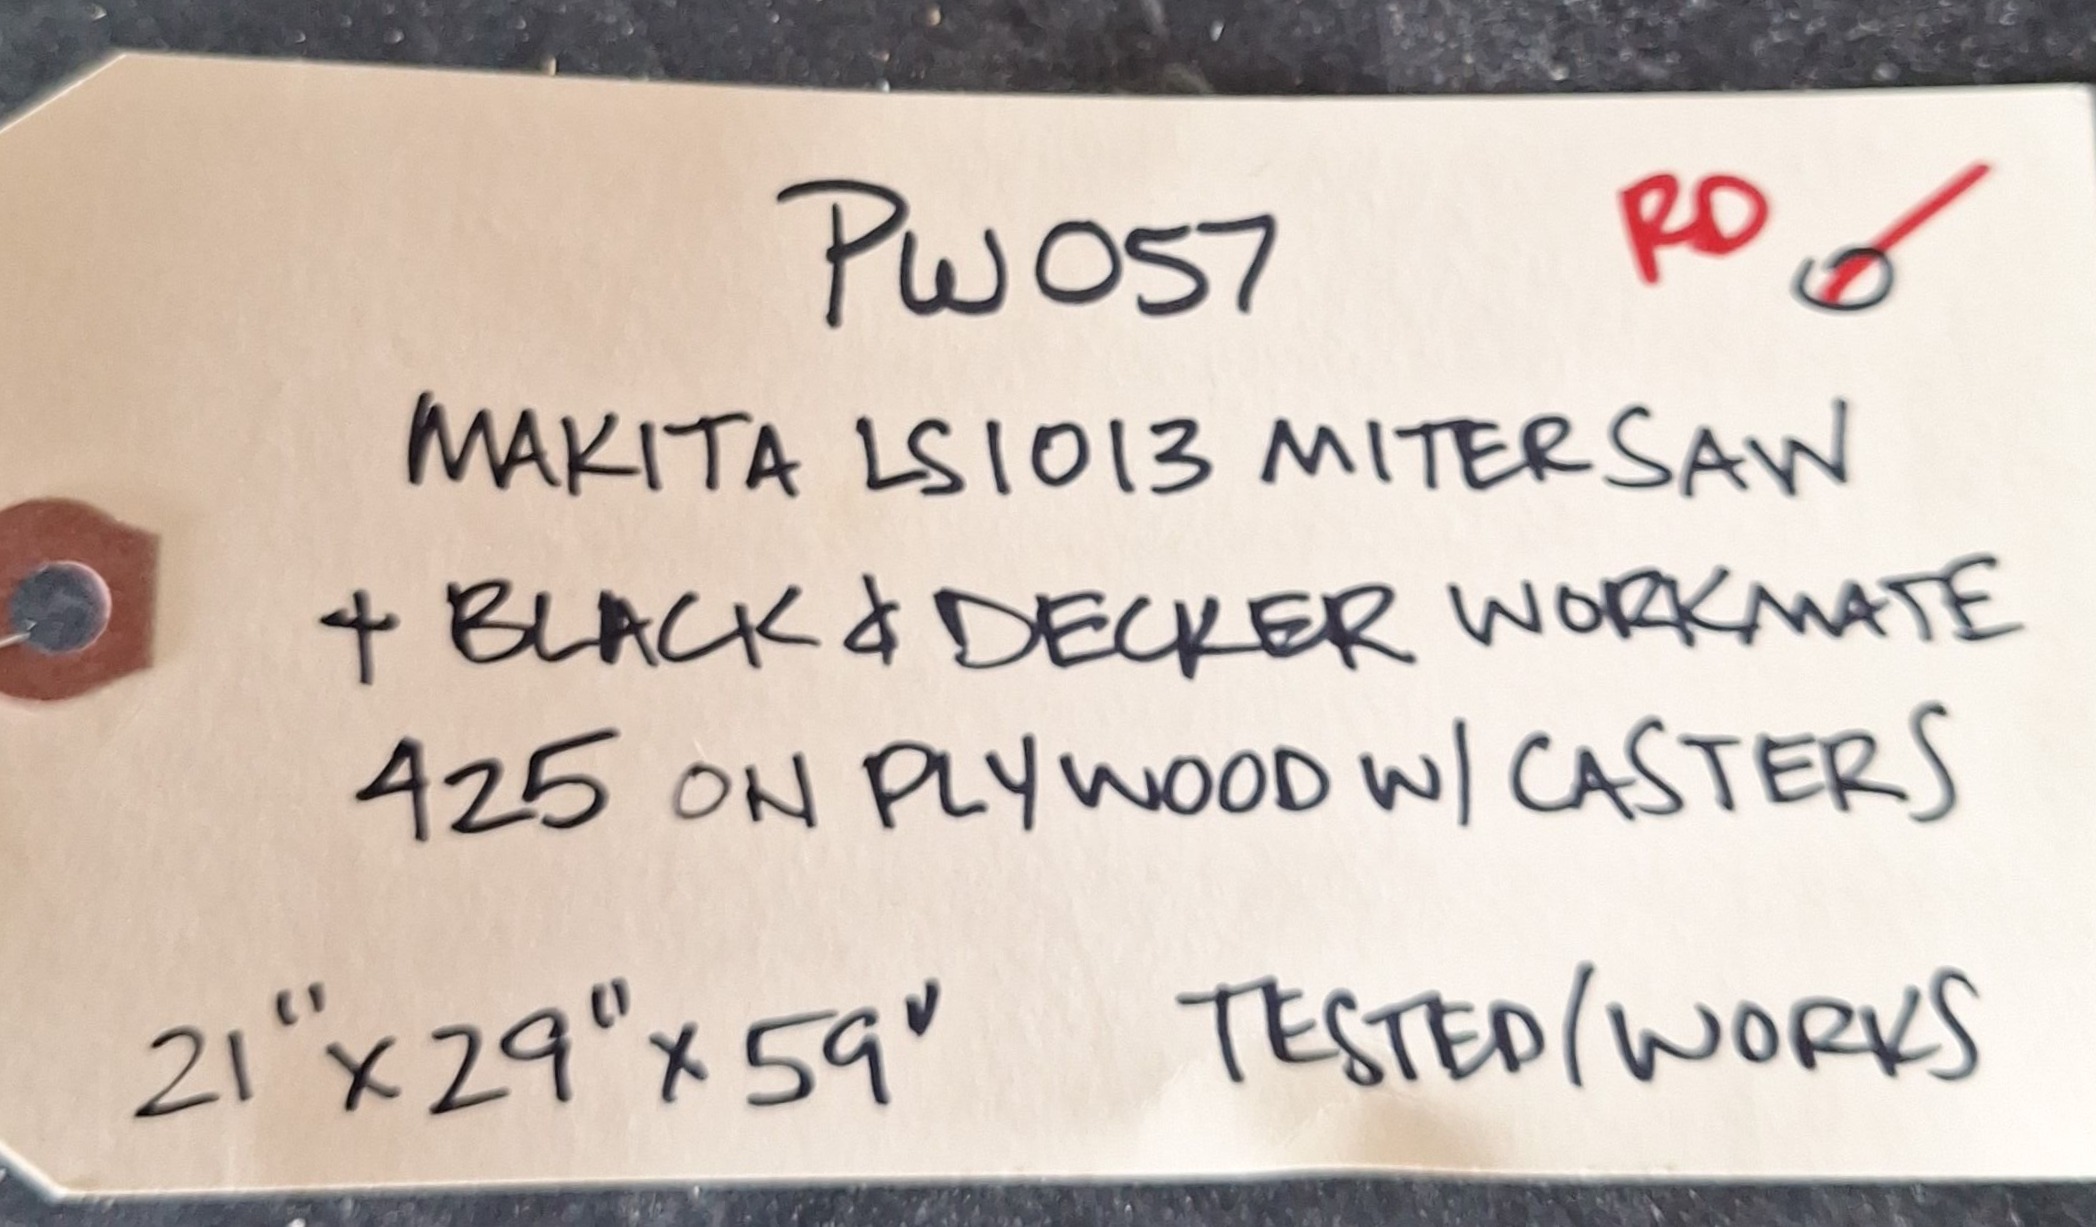 PW057 RD
MAKITA LS1013 MITERSAW
+ BLACK & DECKER WORKMATE
425 ON PLYWOOD W/ CASTERS
21" x 29" x 59" TESTED/WORKS